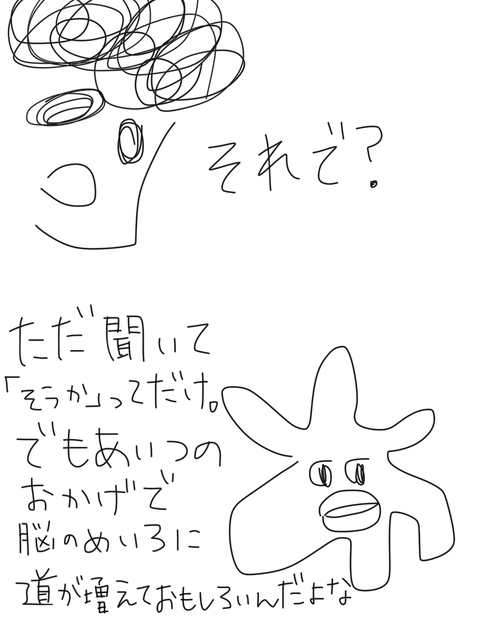 それで?
ただ聞いて
「そうか」ってだけ。
でもあいつの
おかげで
脳のめいろに
道が増えておもしろいんだよな